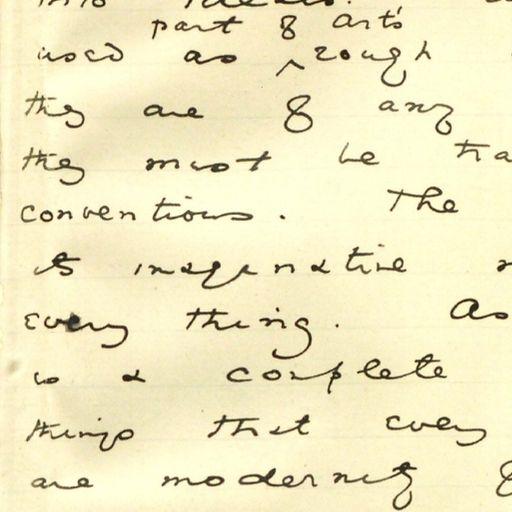 part of art's
used as rough
they are of any
they must be tra
conventions. The
its imaginative
every thing. As
is a complete
things that every
are modernity